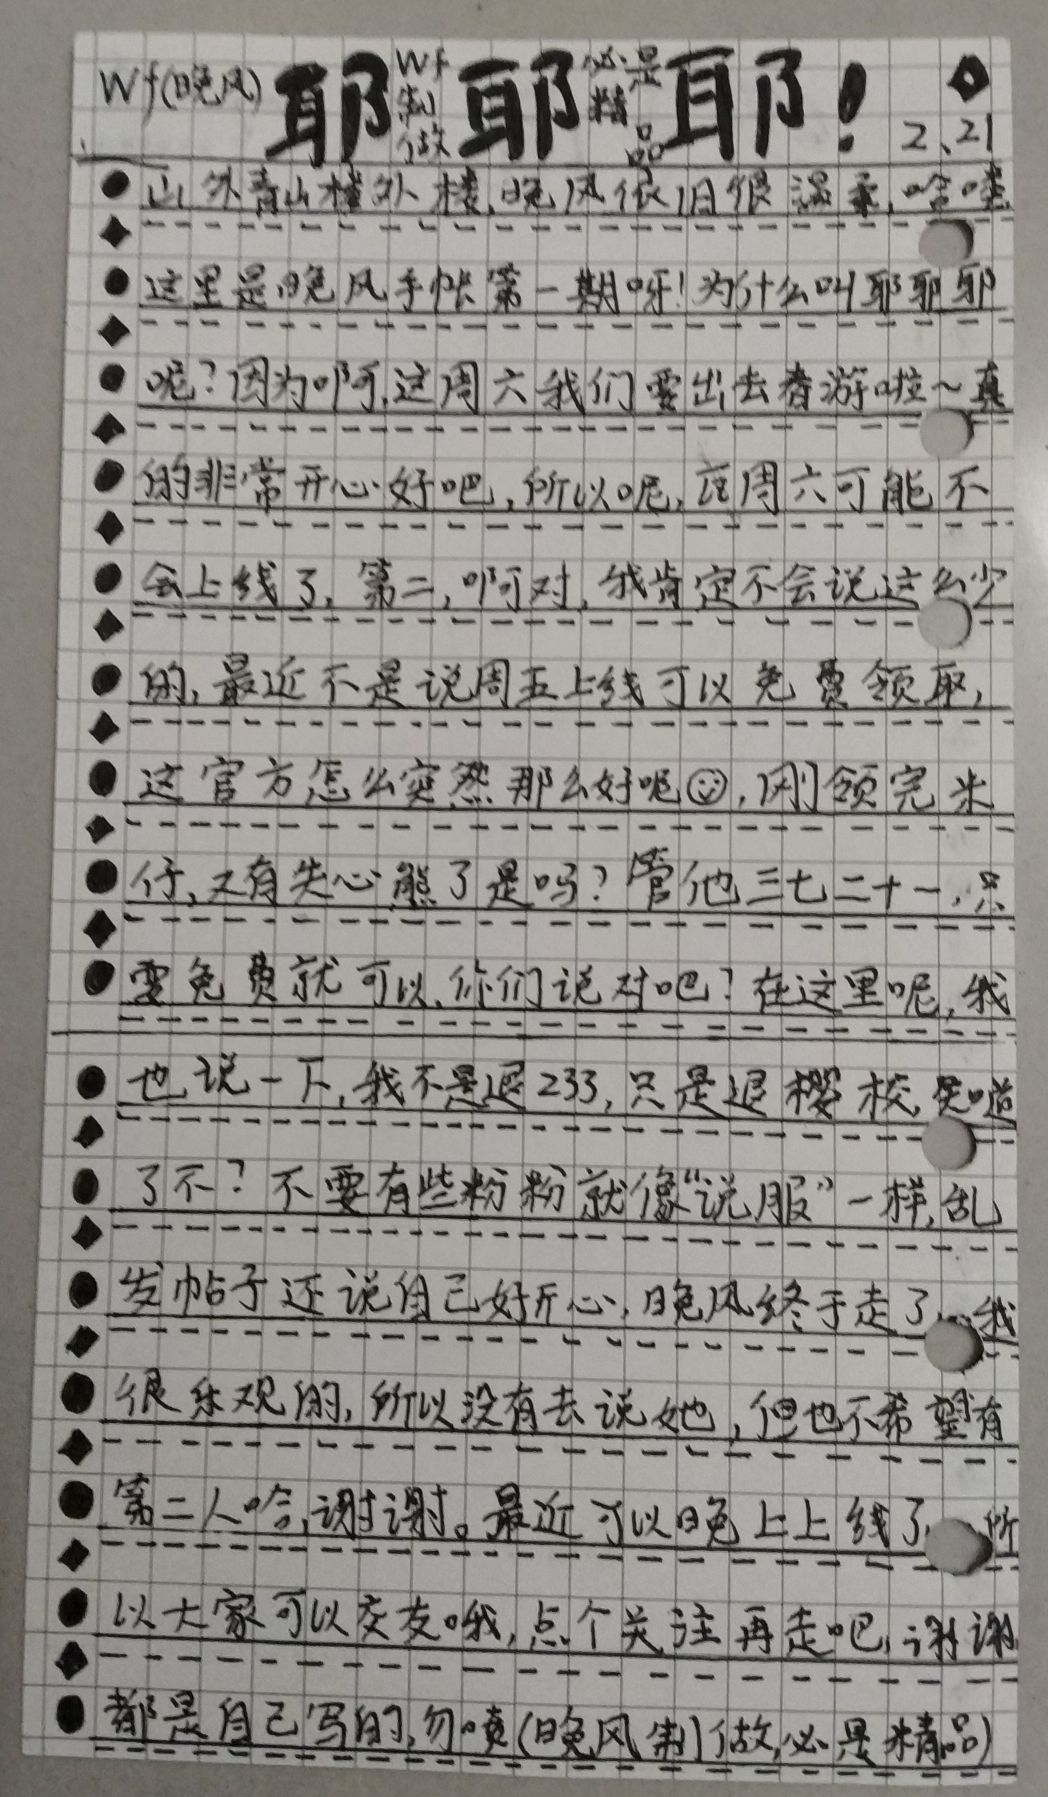 Wf(晚风) 耶 Wf制做 耶 必是精品 耶！ 2、21
山外青山楼外楼,晚风依旧很温柔,哈喽
这里是晚风手帐第一期呀!为什么叫耶耶耶
呢?因为啊,这周六我们要出去春游啦~真
的非常开心好吧,所以呢,在周六可能不
会上线了,第二,啊对,我肯定不会说这么少
的,最近不是说周五上线可以免费领取,
这官方怎么突然那么好呢,刚领完米
仔,又有失心熊了是吗?管他三七二十一,只
要免费就可以,你们说对吧?在这里呢,我
也说一下,我不是退233,只是退樱校,知道
了不?不要有些粉粉就像“说服”一样,乱
发帖子还说自己好开心,晚风终于走了…我
很乐观的,所以没有去说她,但也不希望有
第二人哈,谢谢。最近可以晚上上线了,所
以大家可以交友哦,点个关注再走吧,谢谢
都是自己写的,勿喷(晚风制做,必是精品)